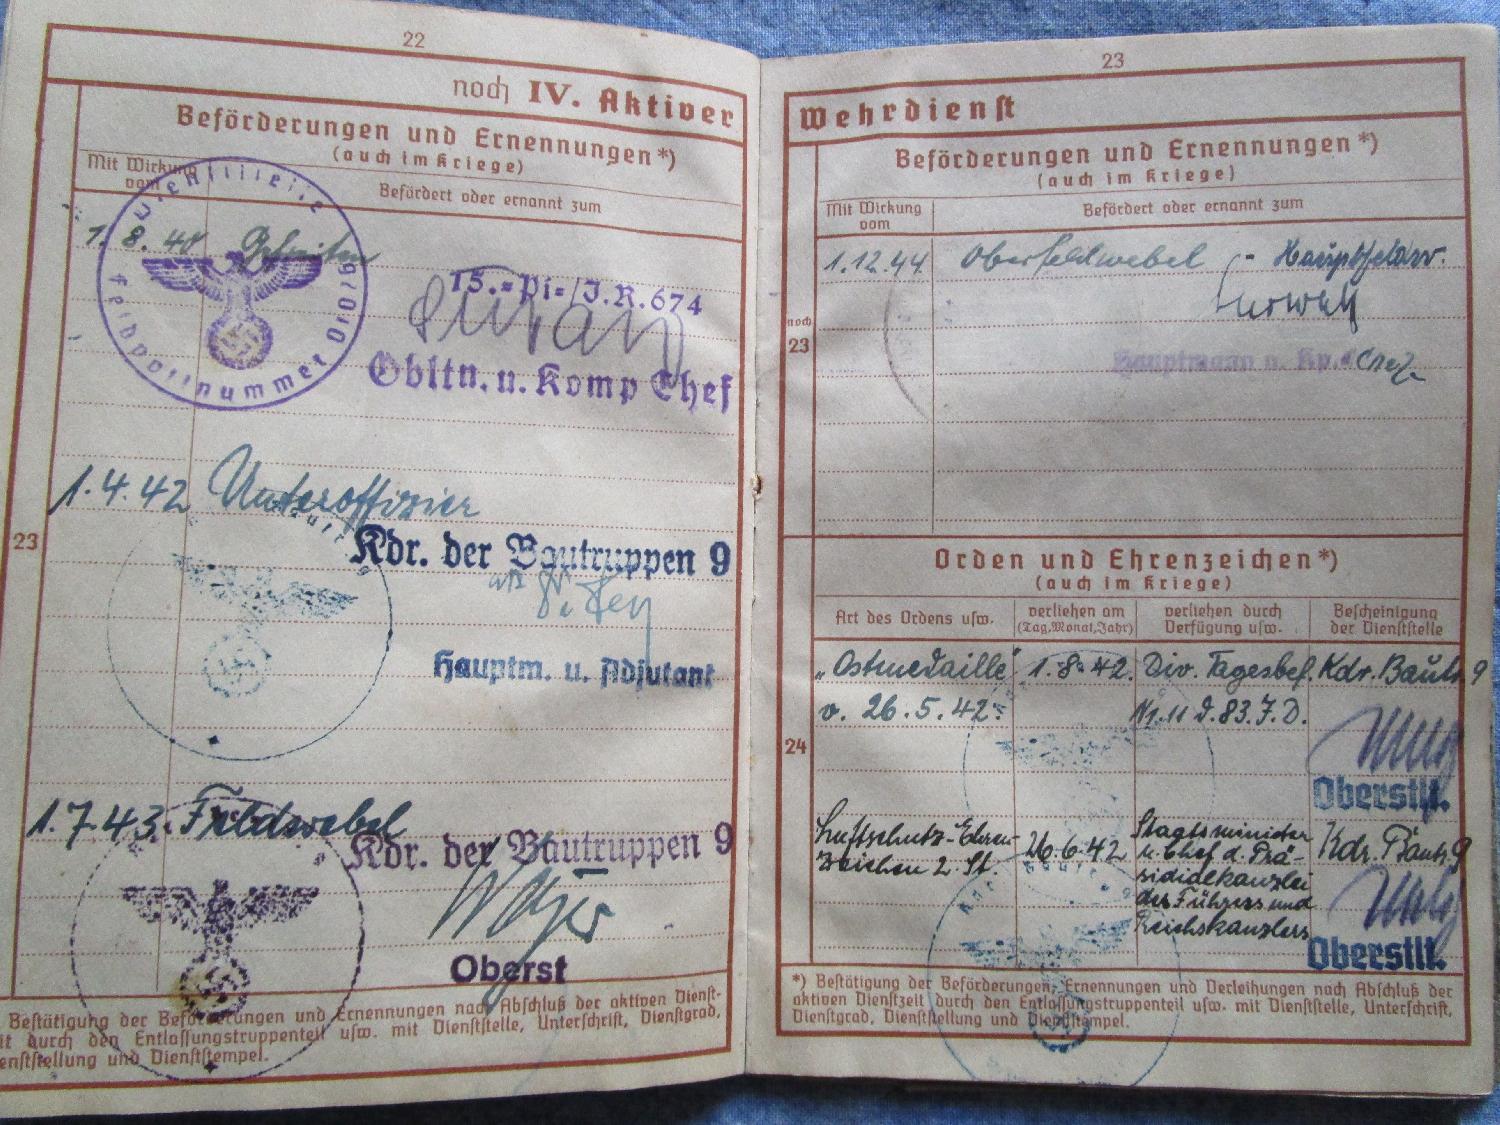 22
noch IV. Aktiver
Beförderungen und Ernennungen*)
(auch im Kriege)
Mit Wirkung
vom
Befördert oder ernannt zum
1. 8. 40 Gefreiten
Dienststelle
Feldpostnummer
15.=Pi=/J.R.674
Obltn. u. Komp Chef
1.4.42 Unteroffizier
Kdr. der Bautruppen 9
Hauptm. u. Adjutant
23
1.7.43. Feldwebel
Kdr. der Bautruppen 9
Oberst
Bestätigung der Beförderungen und Ernennungen nach Abschluß der aktiven Dienst-
it durch den Entlassungstruppenteil usw. mit Dienststelle, Unterschrift, Dienstgrad,
enststellung und Dienststempel.
23
Wehrdienst
Beförderungen und Ernennungen*)
(auch im Kriege)
Mit Wirkung
vom
Befördert oder ernannt zum
1.12.44 Oberfeldwebel
noch
23
Hauptmann u. Kp. Chef
Orden und Ehrenzeichen*)
(auch im Kriege)
Art des Ordens usw.
verliehen am
(Tag, Monat, Jahr)
verliehen durch
Verfügung usw.
Bescheinigung
der Dienststelle
24
„Ostmedaille" 1.8.42. Div. Tagesbef. Kdr. Bautr. 9
v. 26.5.42. Nr. 11 d. 83. J. D.
Oberstlt.
Luftschutz-Ehren-
zeichen 2. St.
26.6.42
Staatsminister
u. Chef d. Prä-
sidialkanzlei
des Führers und
Reichskanzlers
Kdr. Bautr. 9
Oberstlt.
*) Bestätigung der Beförderungen, Ernennungen und Verleihungen nach Abschluß der
aktiven Dienstzeit durch den Entlassungstruppenteil usw. mit Dienststelle, Unterschrift,
Dienstgrad, Dienststellung und Dienststempel.